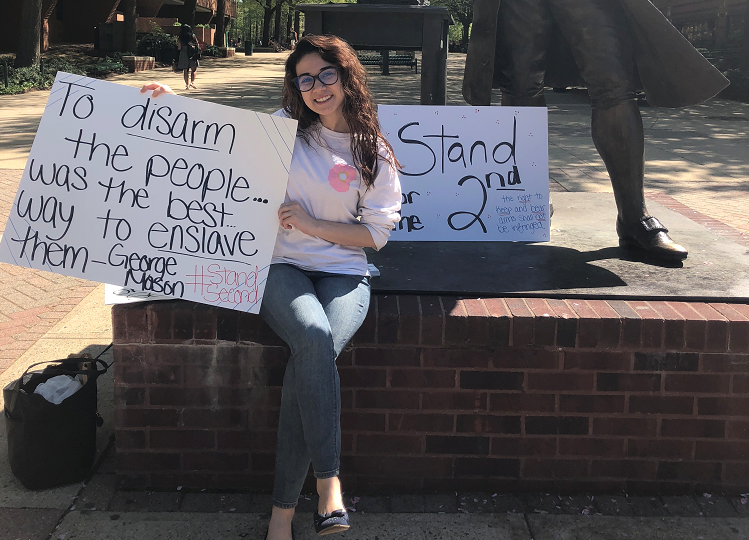 To disarm
the people...
was the best...
way to enslave
them - George
Mason
#Stand
Second
Stand
2nd
the right to
keep and bear
arms shall not
be infringed